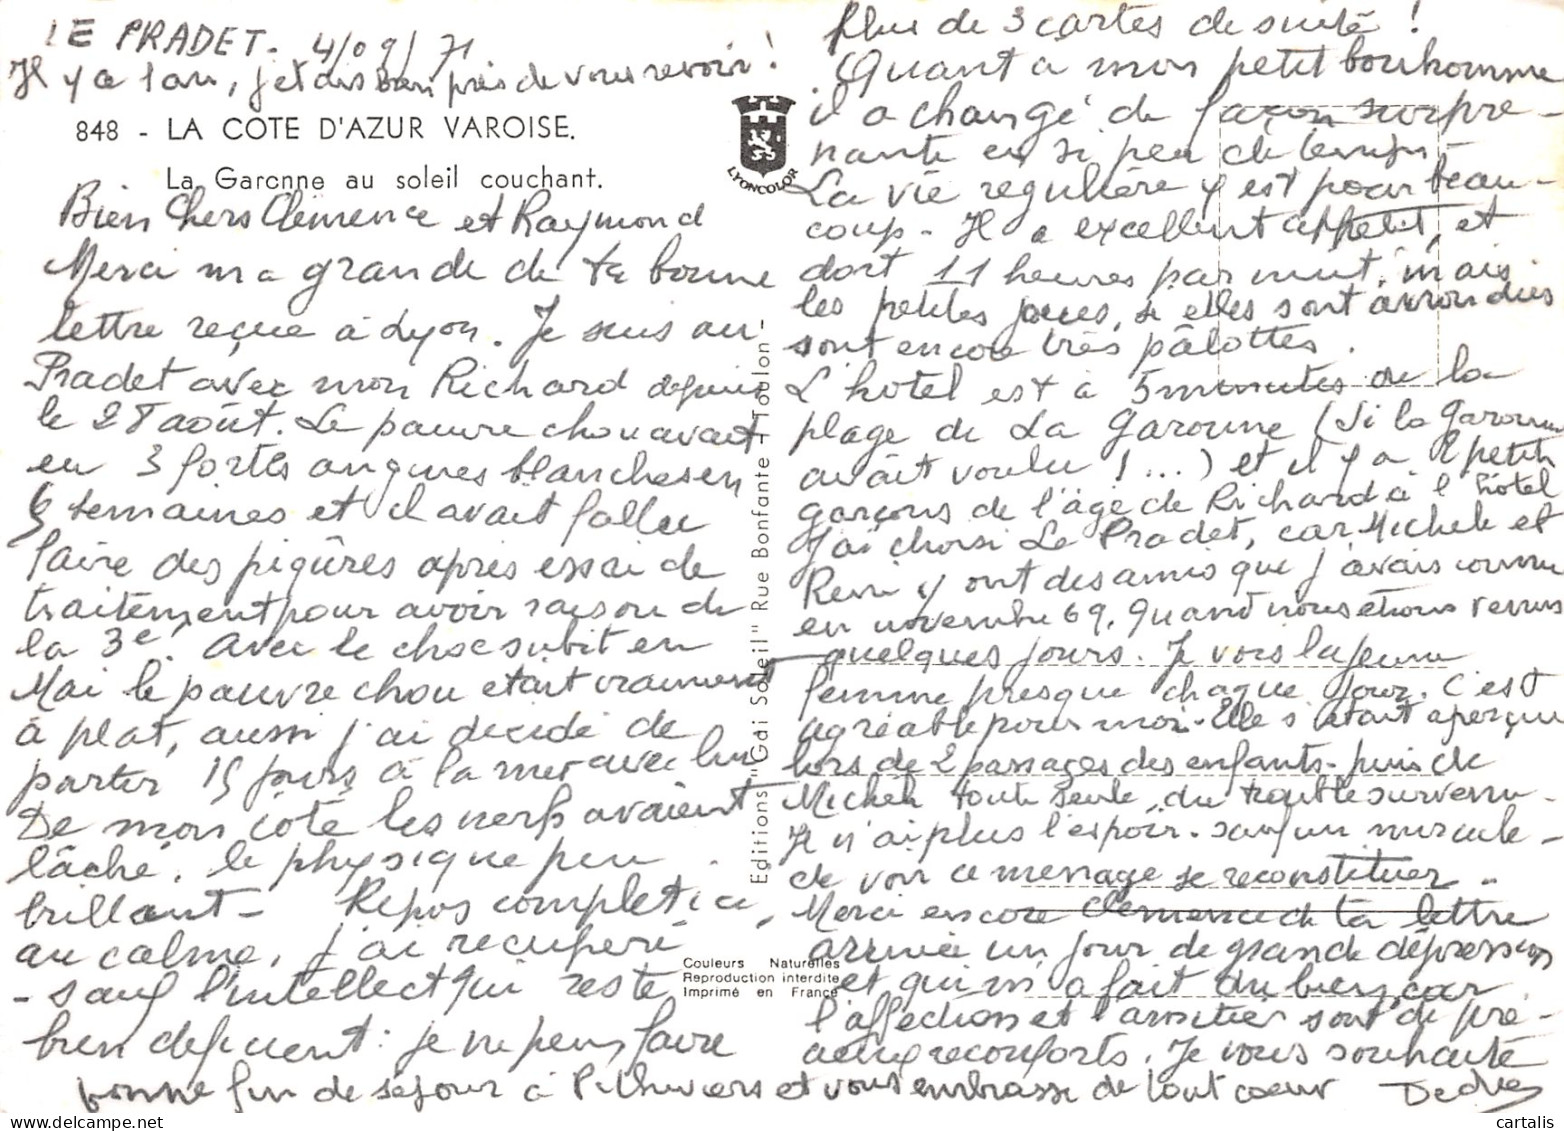 LE PRADET. 4/09/71
Il y a 1 an, j'etais bien près de vous revoir !
848 - LA COTE D'AZUR VAROISE.
La Garonne au soleil couchant.
LYONCOLOR
Bien Chers Clémence et Raymond
Merci ma grande de ta bonne
lettre reçue à Lyon. Je suis au
Pradet avec mon Richard depuis
le 28 août. Le pauvre chou avait
eu 3 fortes angines blanches en
6 semaines et il avait fallu
faire des piqûres après essai de
traitement pour avoir raison de
la 3e. Avec le choc subit en
Mai le pauvre chou était vraiment
à plat, aussi j'ai décidé de
partir 15 jours à la mer avec lui
De mon côté les nerfs avaient
lâché, le physique peu
brillant - Repos complet ici,
au calme, j'ai récupéré
- sauf l'intellect qui reste
bien deficient : je ne peux faire
Editions "Gai Soleil" Rue Bonfante - Toulon -
Couleurs Naturelles
Reproduction interdite
Imprimé en France
plus de 3 cartes de suite !
Quant à mon petit bonhomme
il a changé de façon surpre-
nante en si peu de temps -
La vie régulière y est pour beau-
coup - Il a excellent appétit, et
dort 11 heures par nuit, mais
les petites joues, si elles sont arrondies
sont encore très pâlottes.
L'hôtel est à 5 minutes de la
plage de La Garonne (Si la Garonne
avait voulu !...) et il y a 2 petits
garçons de l'âge de Richard à l'hôtel
J'ai choisi Le Pradet, car Michele et
Remi y ont des amis que j'avais connu
en novembre 69, quand nous étions venus
quelques jours. Je vois la jeune
femme presque chaque jour. C'est
agréable pour moi - Elle s'était aperçue
lors de 2 passages des enfants - puis de
Michèle toute seule, du trouble survenu -
Je n'ai plus l'espoir - sauf un miracle -
de voir ce ménage se reconstituer -
Merci encore Clemence de ta lettre
arrivée un jour de grande dépression
et qui m'a fait du bien, car
l'affection et l'amitié sont de pré-
cieux reconforts. Je vous souhaite
bonne fin de séjour à Pithiviers et vous embrasse de tout coeur
cartalis